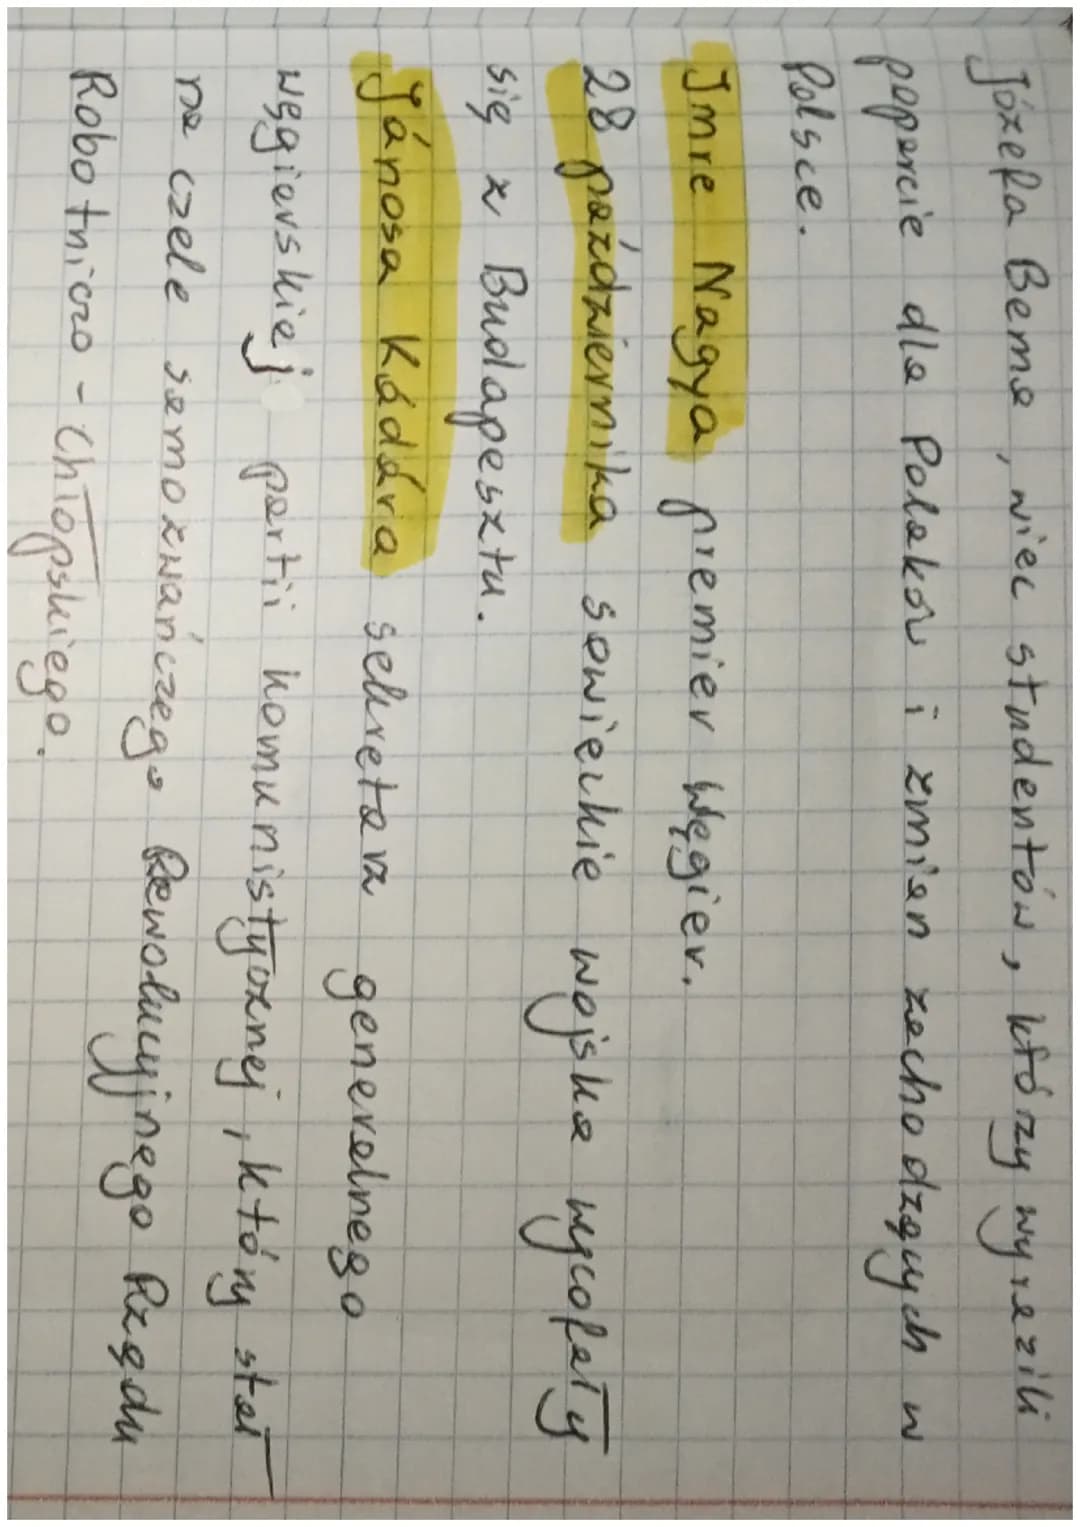 Józefa Bema, wiec studentów, którzy wyrazili
poparcie dla Polaków i zmian zachodzących w
Polsce.
Imre Nagya premier Węgier.
28 października sowieckie wojska wycofały
się z Budapesztu.
Jánosa Kádára sekretarz generalnego
węgierskiej partii komunistycznej, który stał
na czele samozwańczego Rewolucyjnego Rządu
Robotniczo-Chłopskiego.